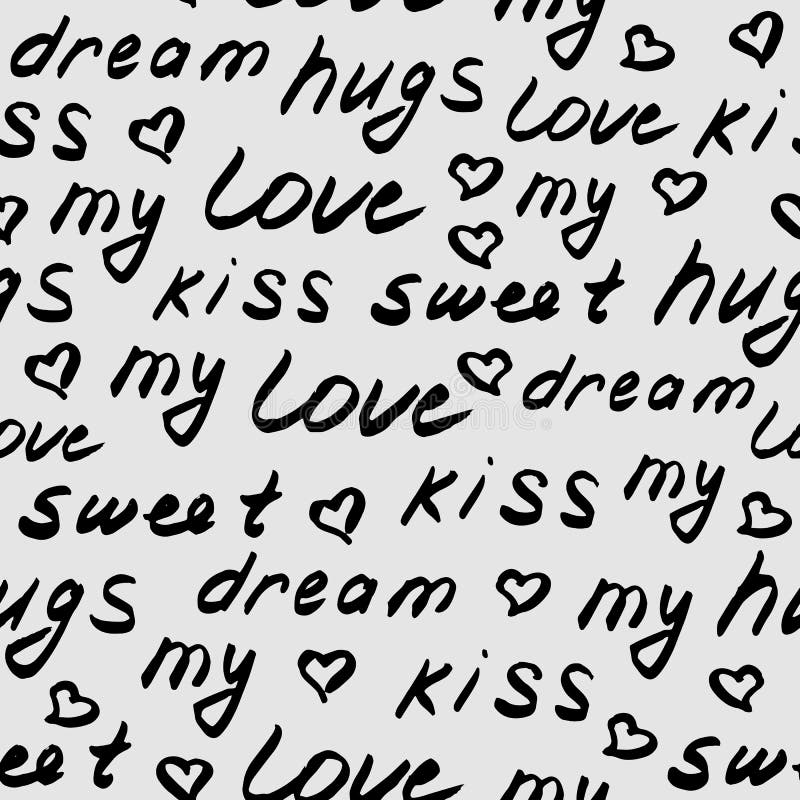 love my
dream hugs love ki
ss my love my
gs kiss sweet hug
my love dream
ove sweet kiss my
ugs dream my hu
my kiss
weet love my sw